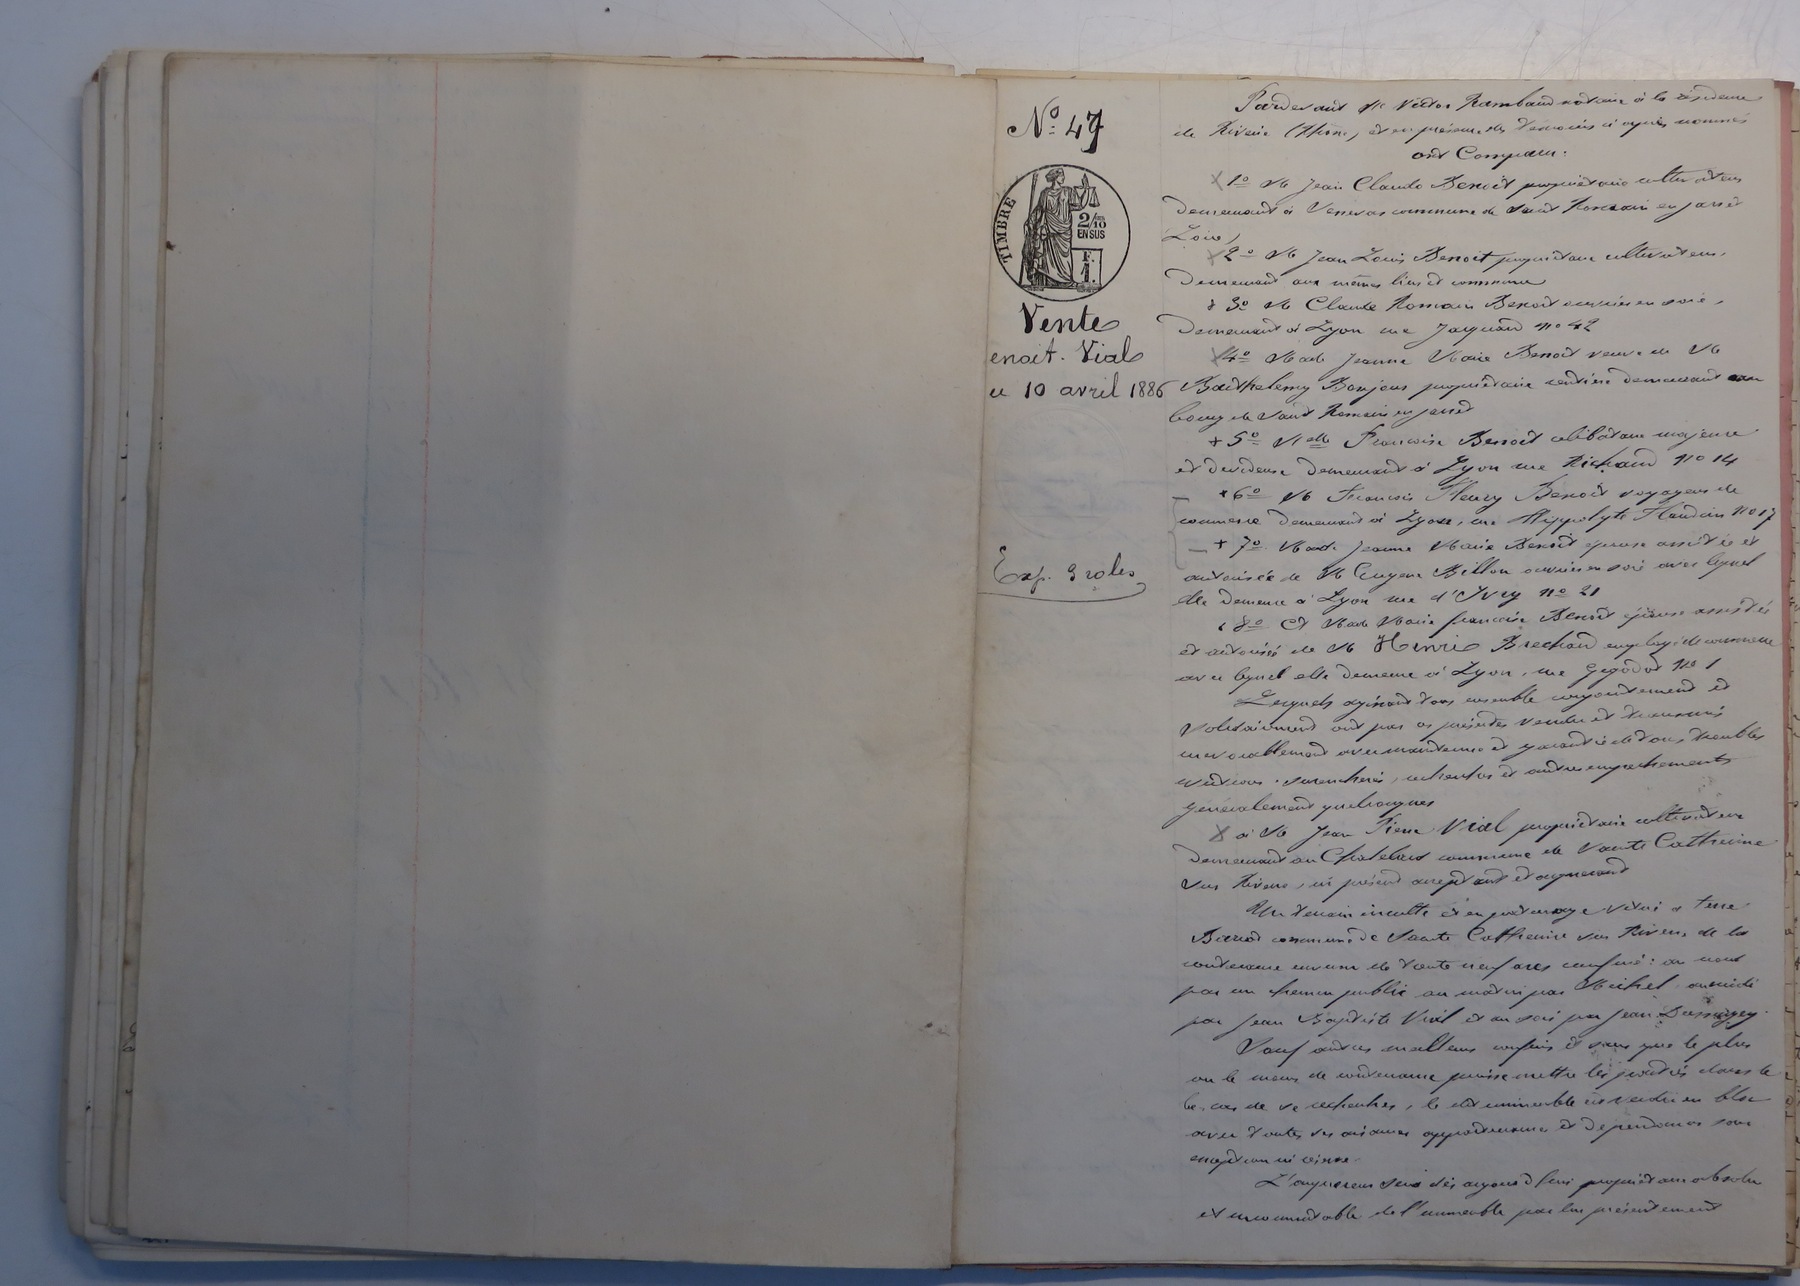 No 47
TIMBRE
2/10
EN SUS
F.
1.
Vente
enoit. Vial
u 10 avril 1886
Exp. 3 roles
Pardevant Me Victor Rambaud notaire à la résidence
de Riverie (Rhône) et en présence des témoins ci après nommés
ont Comparu:
1o M Jean Claude Benoit propriétaire cultivateur
demeurant à commune de Saint Romain en jarret
Loire)
2o M Jean Louis Benoit propriétaire cultivateur,
demeurant aux mêmes lieu et commune
3o M Claude Romain Benoit ouvrier en soie,
demeurant à Lyon rue Jacquard no 42
4o Made Jeanne Marie Benoit veuve de M
Barthelemy Bonjour propriétaire rentière demeurant au
bourg de Saint Romain en jarret
+ 5o Melle Francoise Benoit célibataire majeure
et devideuse demeurant à Lyon rue Richaud no 14
+ 6o M Francois Fleury Benoit voyageur de
commerce demeurant à Lyon, rue Hippolyte Flandrin no 17
+ 7o Made Jeanne Marie Benoit épouse assistée et
autorisée de M Eugene Billon ouvrier en soie avec lequel
elle demeure à Lyon rue d'Ivry no 21
8o Et Made Marie francoise Benoit épouse assistée
et autorisée de M Henri Brechard employé de commerce
avec lequel elle demeure à Lyon, rue Gigodot no 1
Lesquels agissant tous ensemble conjointement et
solidairement ont par ces présentes vendu et transmis
irrevocablement avec maintenue et garantie de tous troubles
evictions, surenchères, recherches et autres empechements
généralement quelconques
à M Jean Pierre Vial propriétaire cultivateur
demeurant au Chatelard commune de Sainte Catherine
sur Riverie, ici présent acceptant et acquerant
Un terrain inculte et en paturage situé à terre
commune de Sainte Catherine sur Riverie, de la
contenance environ de trente neuf ares confiné: au nord
par un chemin public au matin par Michel au midi
par Jean Baptiste Vial et au soir par Jean
Sauf autres meilleurs confins et sans que le plus
ou le moins de contenance puisse mettre les parties dans le
le cas de se rechercher, le dit immeuble est vendu en bloc
avec toutes ses aisances appartenances et dependances sans
exception ni réserve.
L'acquereur sera dès aujourd'hui propriétaire absolu
et incommutable de l'immeuble par lui présentement